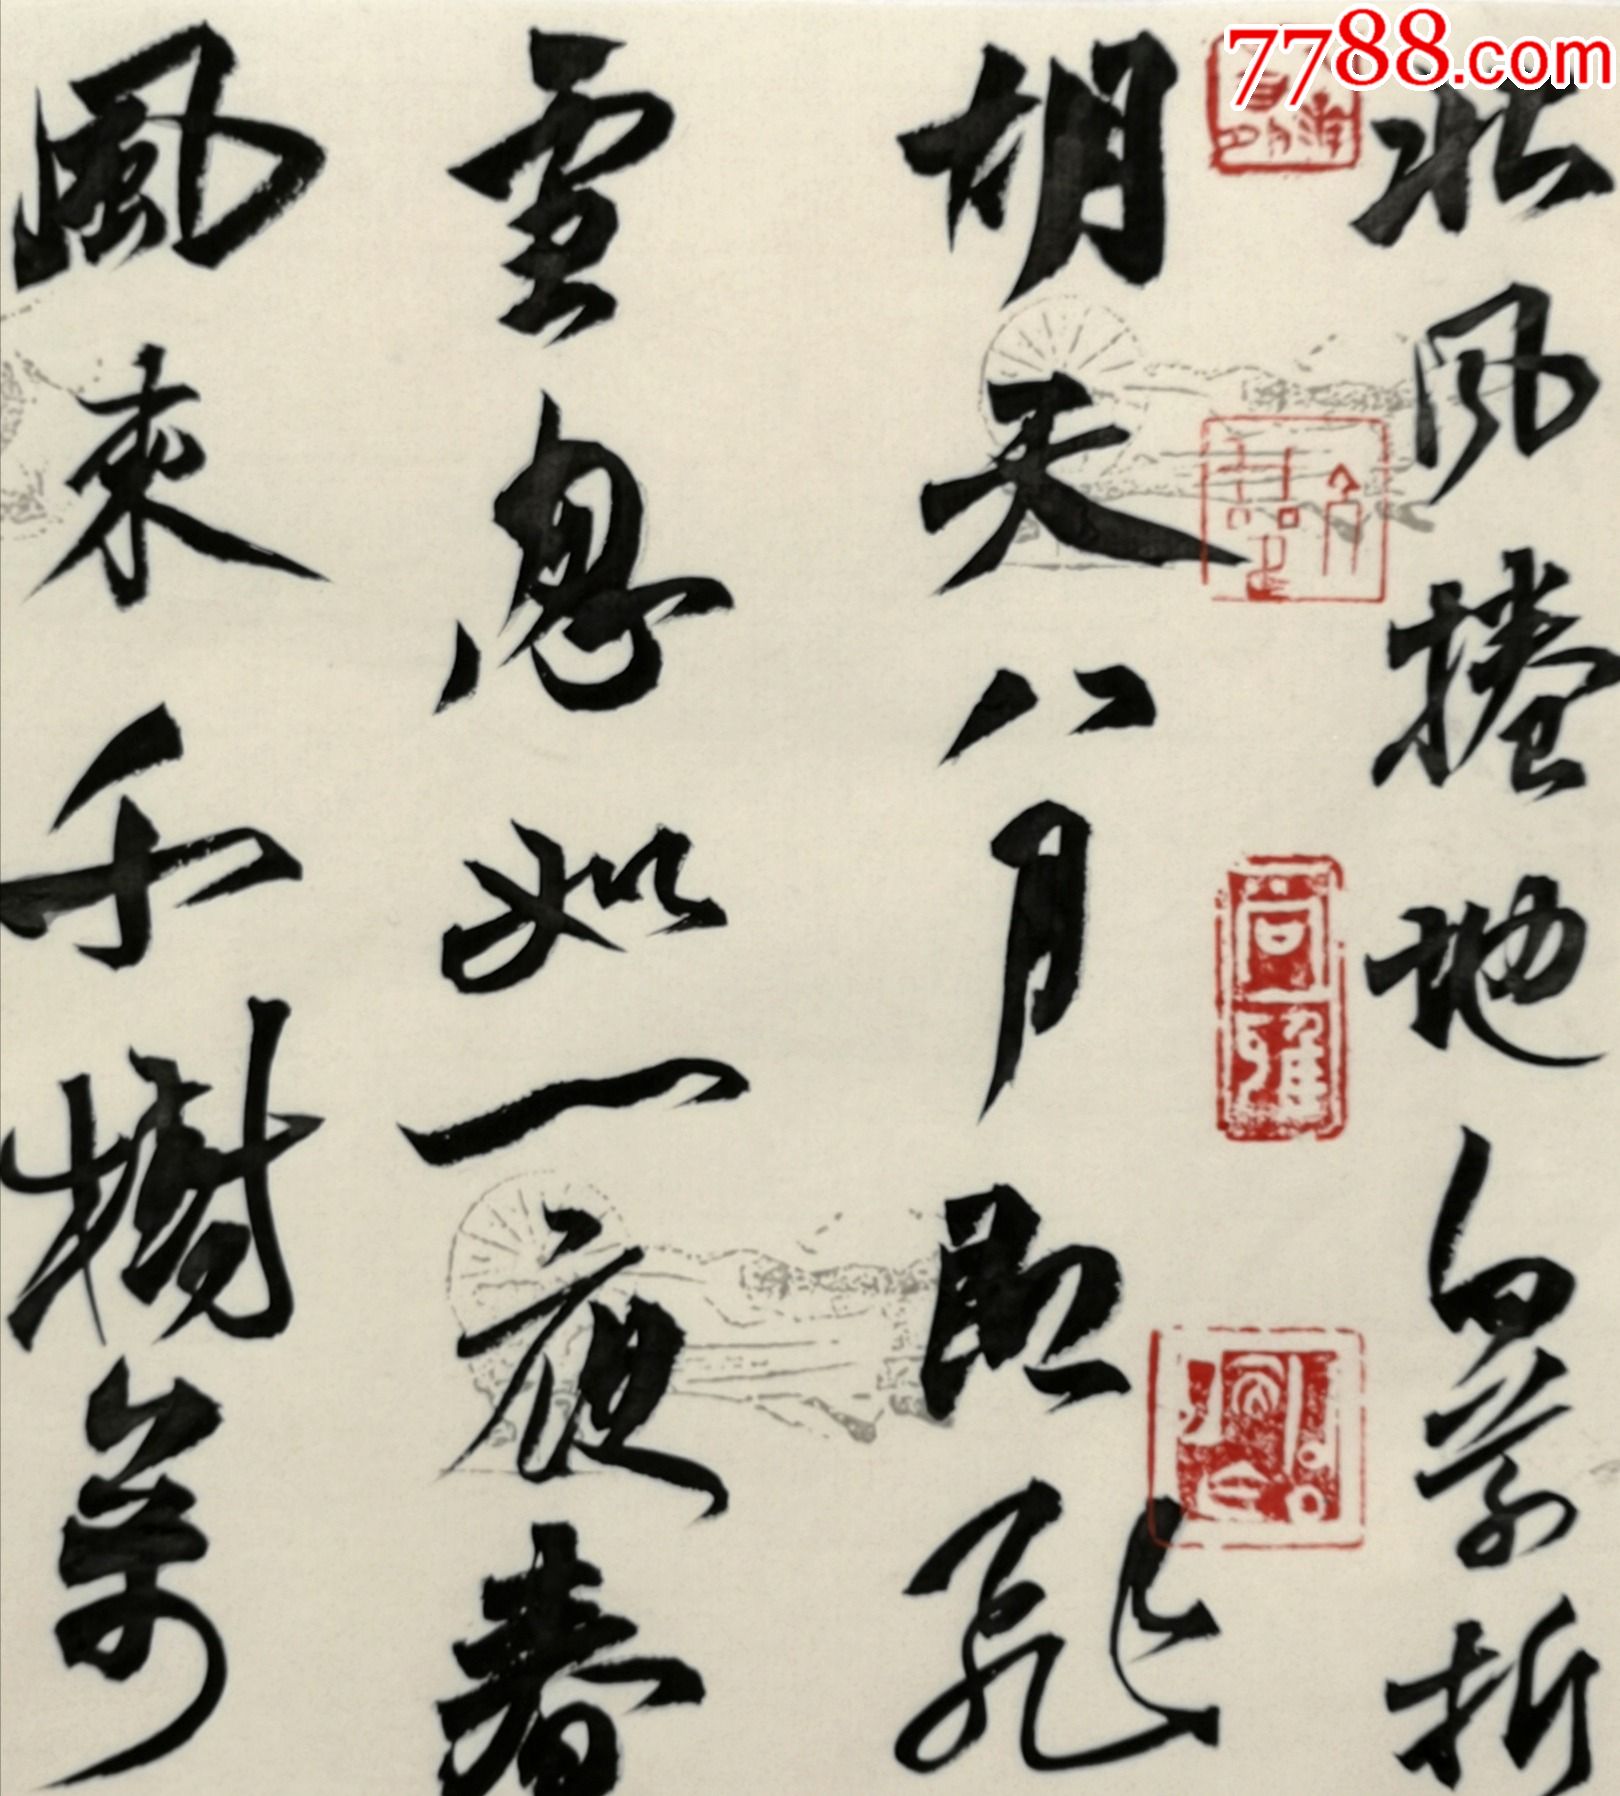 7788.com
北風捲地白草折
胡天八月即飛
雪忽如一夜春
風來千樹萬
尚雅